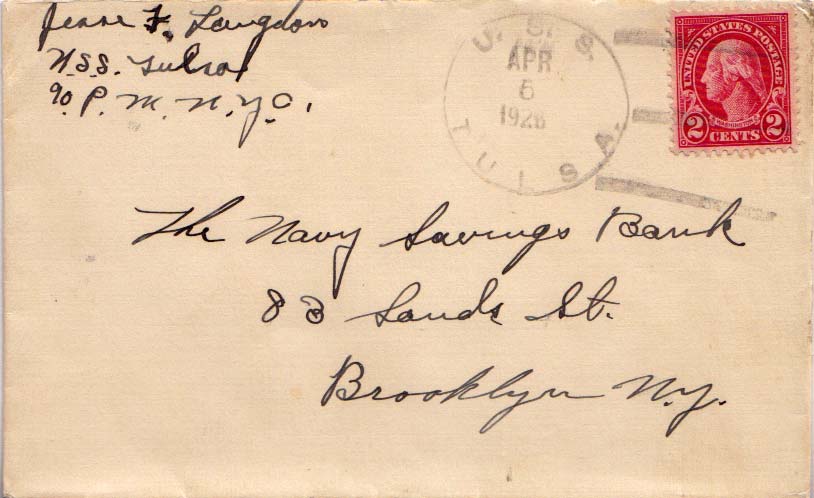 Jesse F. Langdon
U.S.S. Tulsa
℅ P. M. N.Y.C.
U. S. S.
APR
6
1926
TULSA.
UNITED STATES POSTAGE
WASHINGTON
2 CENTS 2
The Navy Savings Bank
83 Sands St.
Brooklyn N.Y.